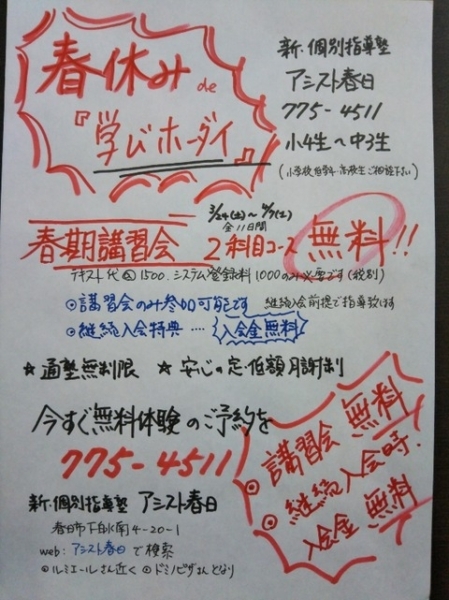 春休み de
『学びホーダイ』
新・個別指導塾
アシスト春日
775-4511
小4生〜中3生
(小学校低学年・高校生ご相談下さい)
3/24(土)〜4/7(土)
全11日間
春期講習会 2科目コース 無料!!
テキスト代 1500. システム登録料1000のみ必要です(税別)
◎講習会のみ参加可能です 継続入会前提で指導致します
◎継続入会特典 .... 入会金無料
★通塾無制限 ★安心の定・低額月謝制
今すぐ無料体験のご予約を
775-4511
◎講習会 無料
◎継続入会時.
入会金 無料
新・個別指導塾 アシスト春日
春日市下白水南4-20-1
web: アシスト春日 で検索
◎ルミエールさん近く ◎ドミノピザさんとなり